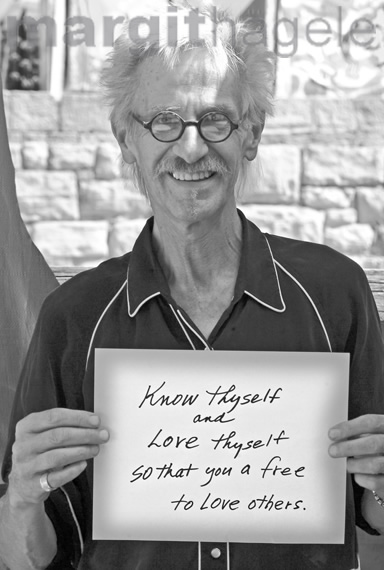 margithagele
Know thyself
and
Love thyself
so that you a free
to Love others.